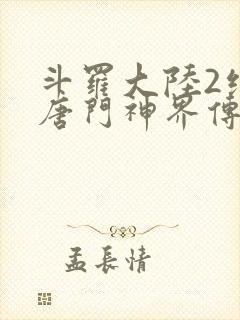 斗羅大陸2絕
唐門神界傳
孟長情